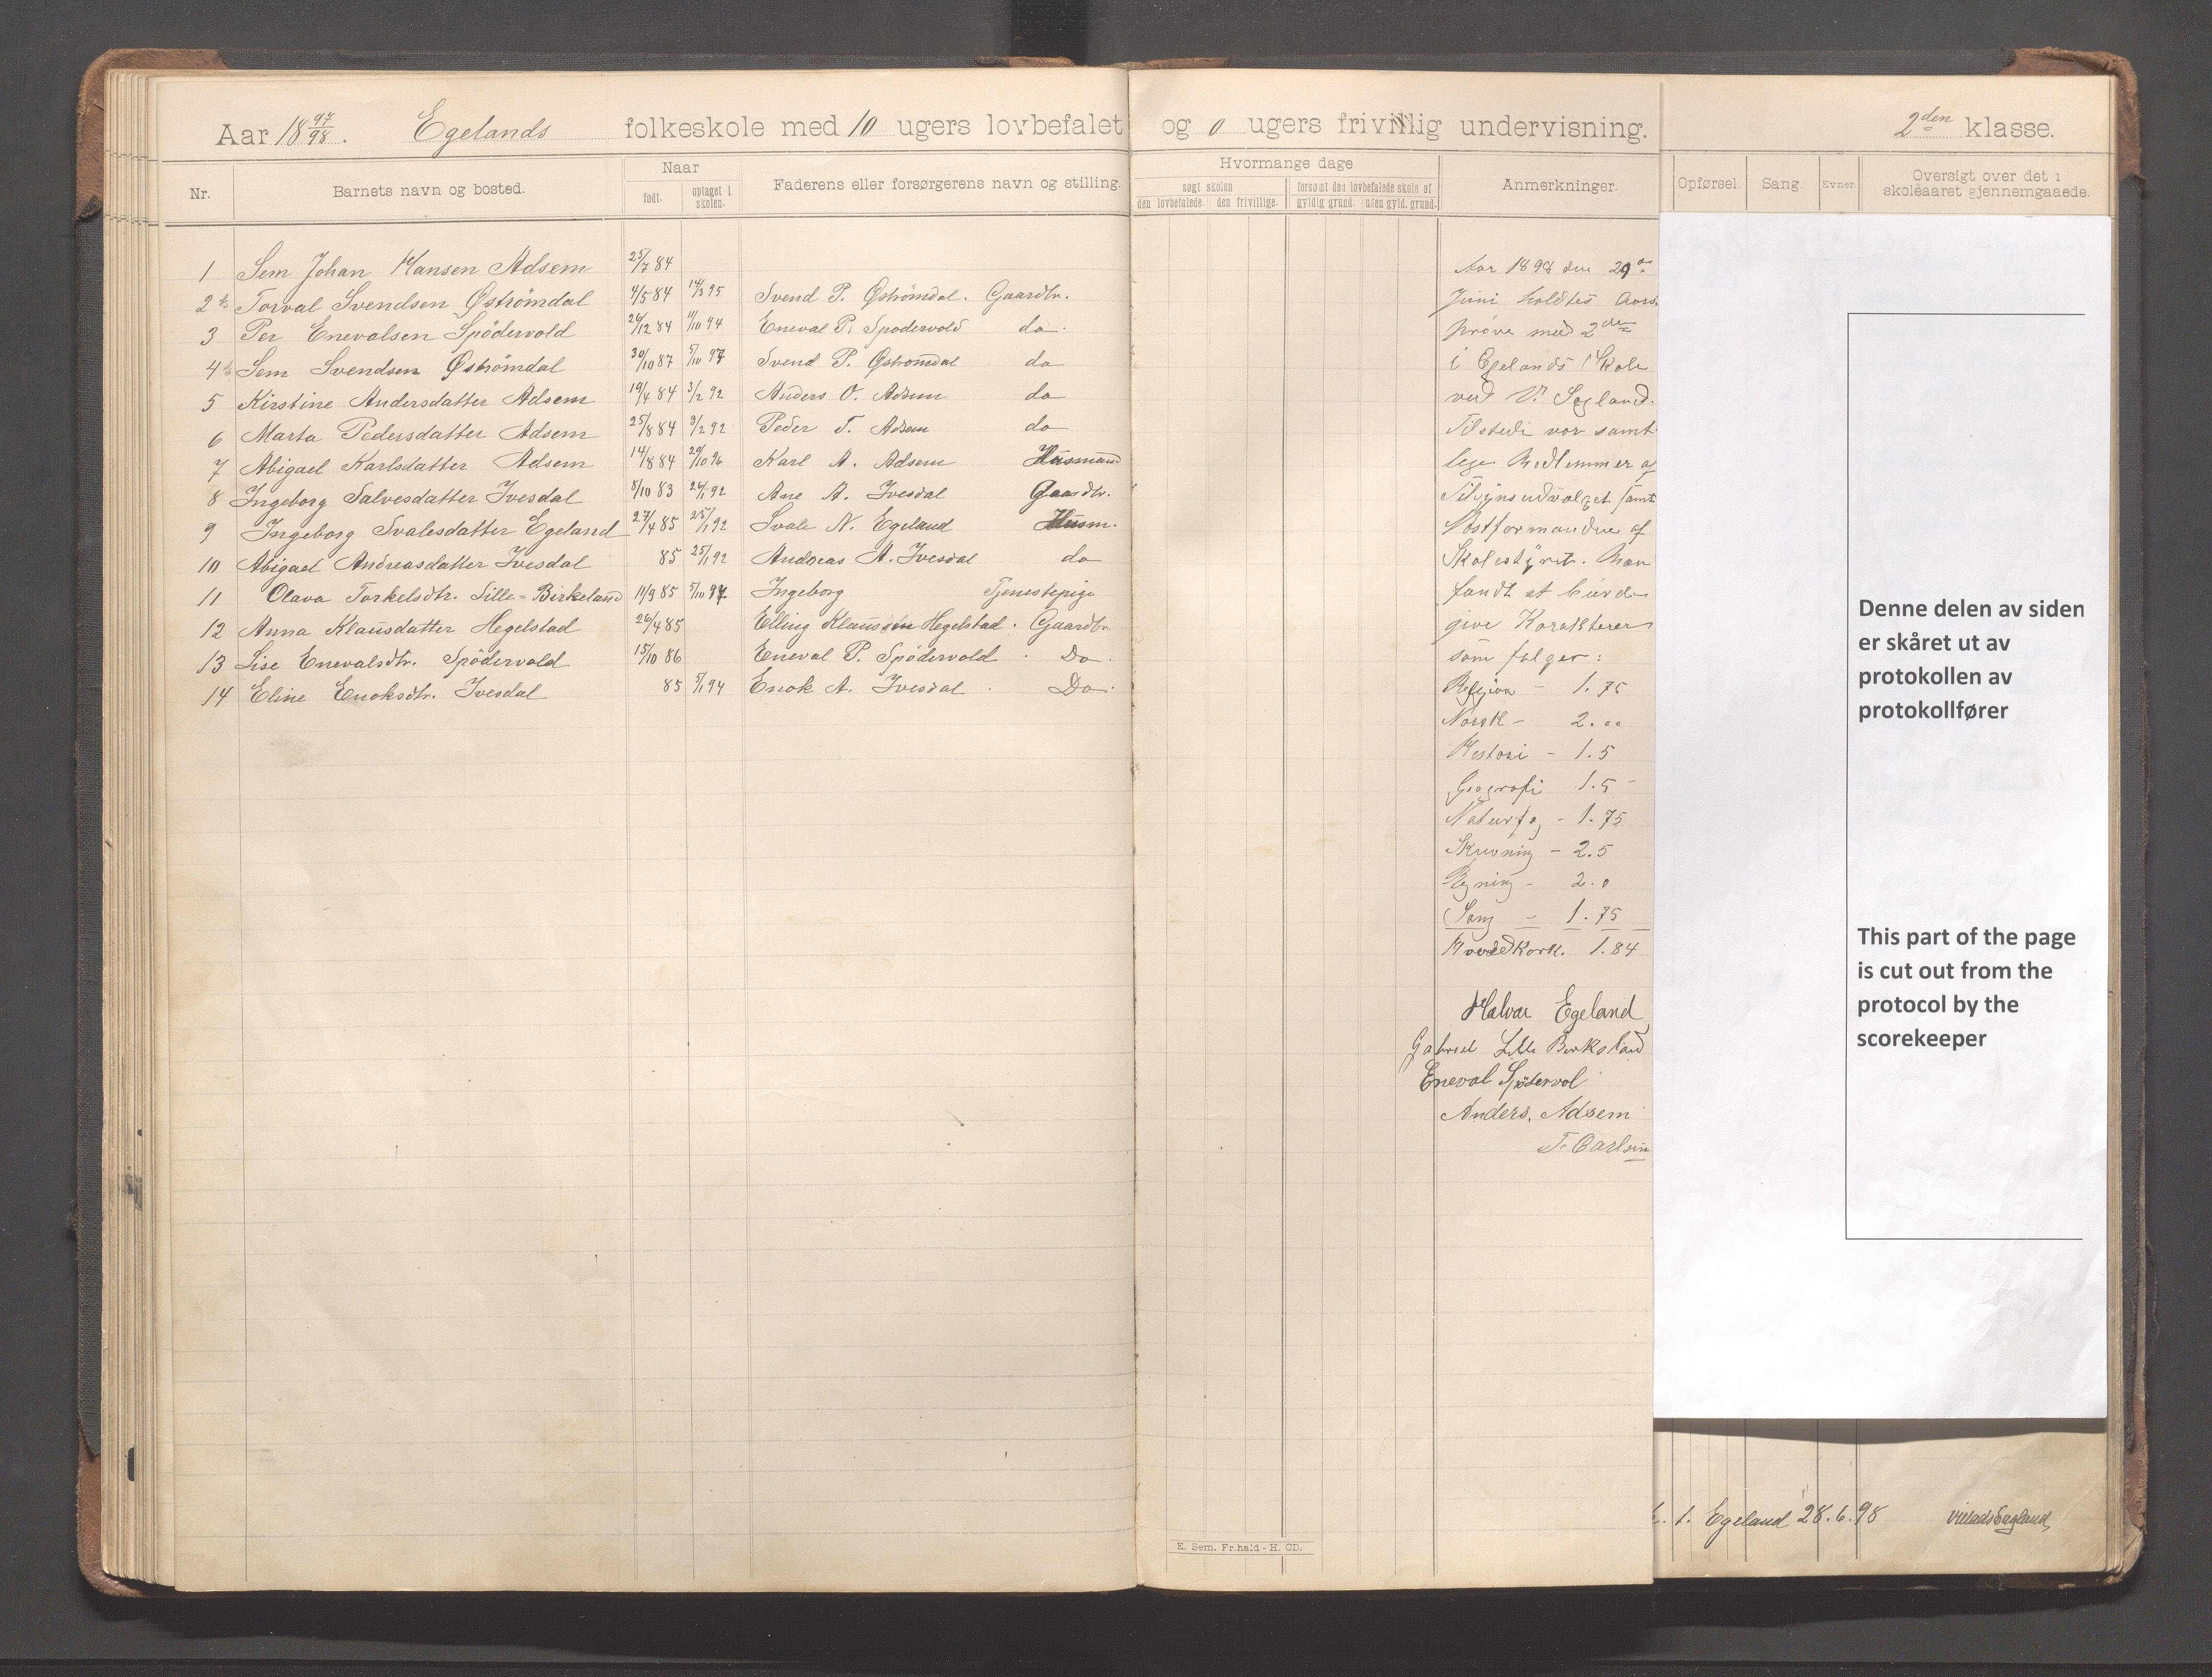 Aar 18 97/98. Egelands folkeskole med 10 ugers lovbefalet og 0 ugers frivillig undervisning. 2den klasse.
Nr. Barnets navn og bosted. Naar født. optaget i skolen. Faderens eller forsørgerens navn og stilling. Hvormange dage søgt skolen den lovbefalede. den frivillige. forsømt den lovbefalede skole af gyldig grund. uden gyld. grund. Anmerkninger. Opførsel. Sang. Evner. Oversigt over det i skoleaaret gjennemgaaede.
1 Sem Johan Hansen Adsem 25/7 84
2 Torval Svendsen Øströmdal 4/5 84 14/3 95 Svend P. Öströmdal. Gaardbr.
3 Per Enevalsen Spödervold 26/12 84 11/10 94 Eneval P. Spodervold do.
4 Sem Svendsen Øströmdal 30/10 87 5/10 97 Svend P. Öströmdal do
5 Kirstine Andersdatter Adsem 19/4 84 3/2 92 Anders O. Adsem do
6 Marta Pedersdatter Adsem 25/8 84 3/2 92 Peder T. Adsem do
7 Abigael Karlsdatter Adsem 14/8 84 29/10 96 Karl A. Adsem Husmand
8 Ingeborg Salvesdatter Ivesdal 8/10 83 26/1 92 Ane A. Ivesdal Gaardbr.
9 Ingeborg Svalesdatter Egeland 27/4 85 25/1 92 Svale N. Egeland Husm.
10 Abigael Andreasdatter Ivesdal 85 25/1 92 Andreas A. Ivesdal do
11 Olava Torkelsdtr. Lille-Birkeland 11/9 85 5/10 97 Ingeborg Tjenestepige
12 Anna Klausdatter Hegelstad 26/4 85 Elling Klaussen Hegelstad. Gaardbr.
13 Lise Enevalsdtr. Spödervold 15/10 86 Eneval P. Spödervold. Do.
14 Eline Enoksdtr. Ivesdal 85 5/1 94 Enok A. Ivesdal. Do.
Aar 1898 den 29de
Juni holdtes Aars
prøve med 2den
i Egelands Skole
ved V. Segland.
Tilstede var samt
lige Medlemmer af
Tilsynsudvalget samt
af
Skolestyret. Man
fandt at burde
give Karakterer
som følger:
Religion - 1.75
Norsk - 2.00
Historie - 1.5
Geografi 1.5
Naturfag - 1.75
Skrivning - 2.5
Regning - 2.0
Sang - 1.75
Hovedkark. 1.84
Halvar Egeland
Gabriel Lille Birkeland
Eneval Spödervol
Anders. Adsem
T. Carlsen
Denne delen av siden
er skåret ut av
protokollen av
protokollfører
This part of the page
is cut out from the
protocol by the
scorekeeper
1. Egeland 28.6.98
E. Sem. Fr.hald - H. CD.